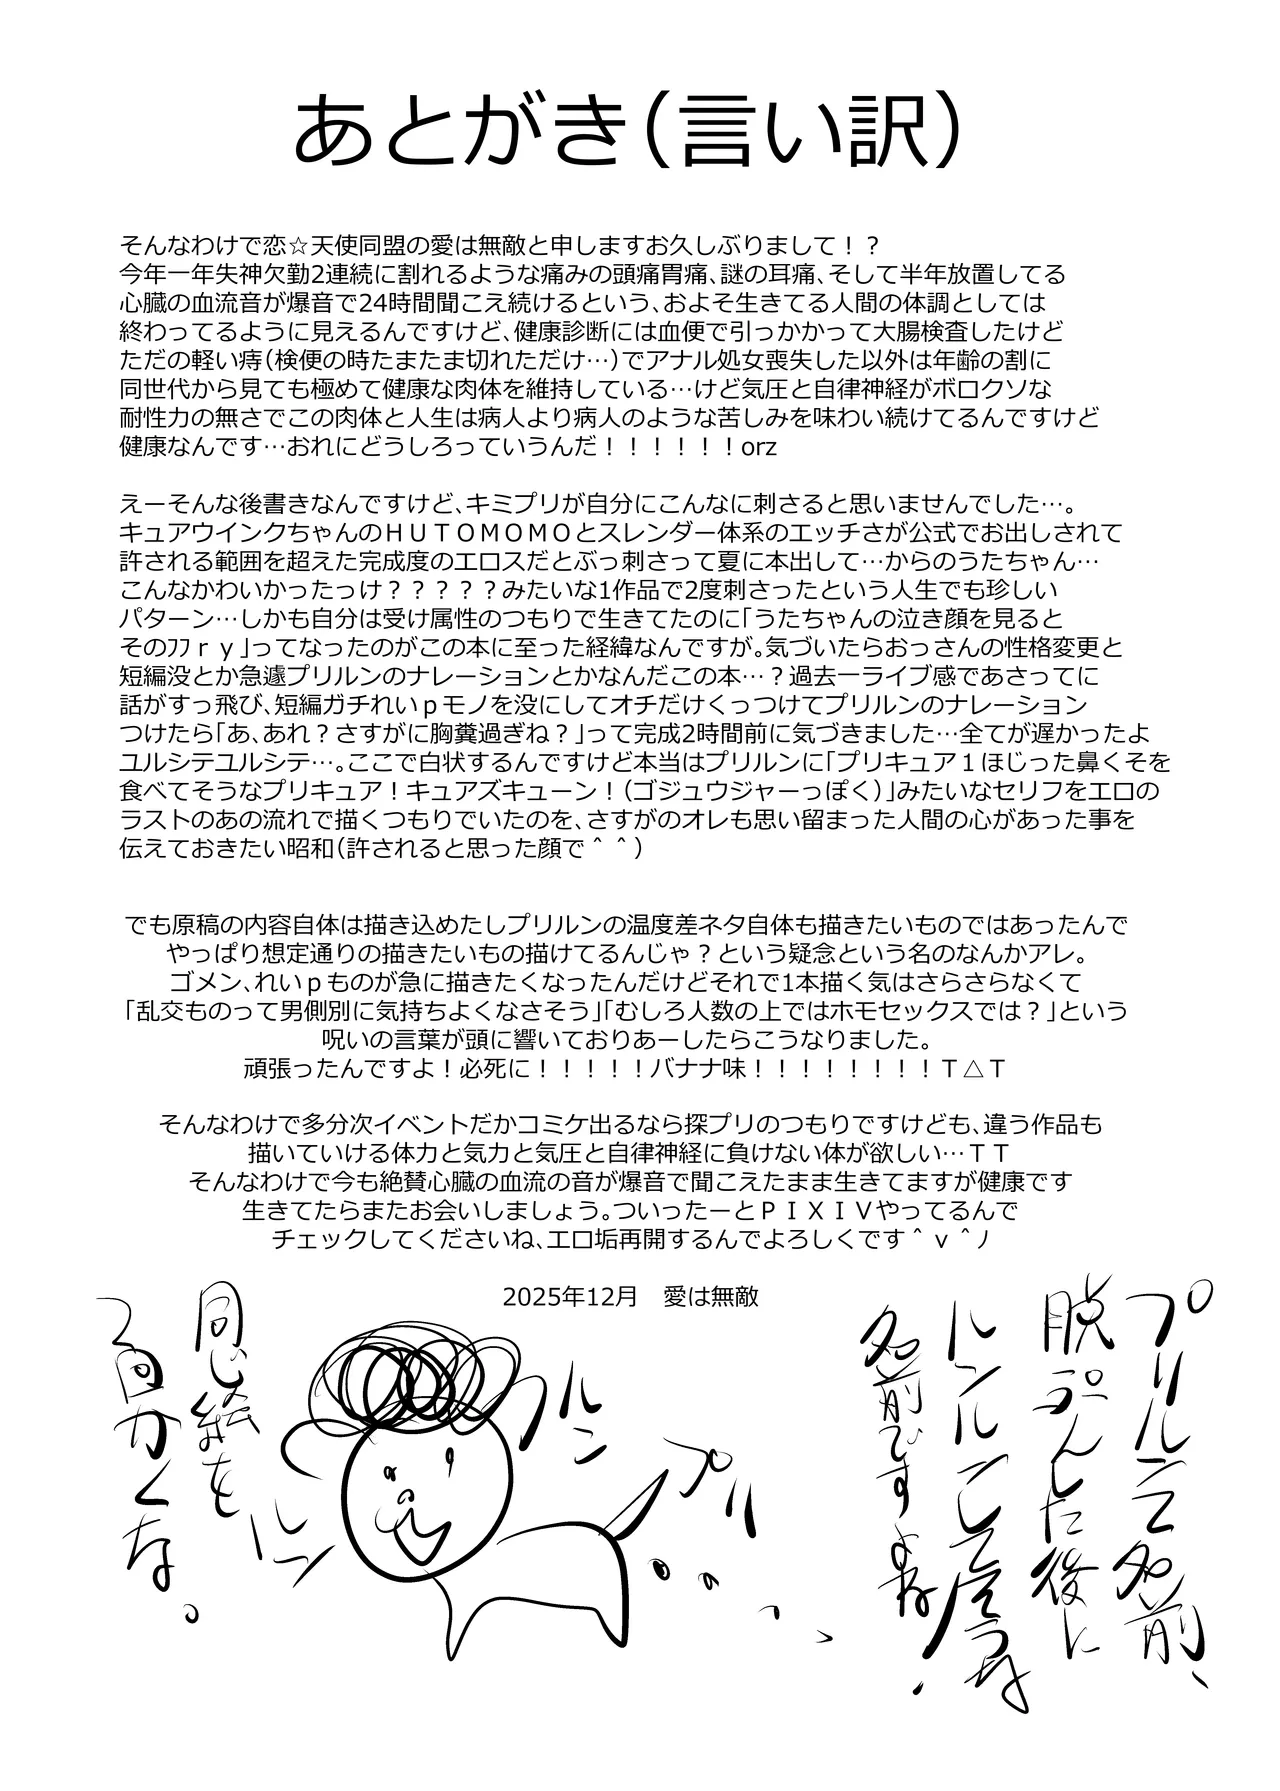 あとがき（言い訳）
そんなわけで恋☆天使同盟の愛は無敵と申しますお久しぶりまして！？
今年一年失神欠勤2連続に割れるような痛みの頭痛胃痛、謎の耳痛、そして半年放置してる
心臓の血流音が爆音で24時間聞こえ続けるという、およそ生きてる人間の体調としては
終わってるように見えるんですけど、健康診断には血便で引っかかって大腸検査したけど
ただの軽い痔（検便の時たまたま切れただけ…）でアナル処女喪失した以外は年齢の割に
同世代から見ても極めて健康な肉体を維持している…けど気圧と自律神経がボロクソな
耐性力の無さでこの肉体と人生は病人より病人のような苦しみを味わい続けてるんですけど
健康なんです…おれにどうしろっていうんだ！！！！！！orz
えーそんな後書きなんですけど、キミプリが自分にこんなに刺さると思いませんでした…。
キュアウインクちゃんのＨＵＴＯＭＯＭＯとスレンダー体系のエッチさが公式でお出しされて
許される範囲を超えた完成度のエロスだとぶっ刺さって夏に本出して…からのうたちゃん…
こんなかわいかったっけ？？？？？みたいな1作品で2度刺さったという人生でも珍しい
パターン…しかも自分は受け属性のつもりで生きてたのに「うたちゃんの泣き顔を見ると
そのﾌﾌｒｙ」ってなったのがこの本に至った経緯なんですが。気づいたらおっさんの性格変更と
短編没とか急遽プリルンのナレーションとかなんだこの本…？過去一ライブ感であさってに
話がすっ飛び、短編ガチれいｐモノを没にしてオチだけくっつけてプリルンのナレーション
つけたら「あ、あれ？さすがに胸糞過ぎね？」って完成2時間前に気づきました…全てが遅かったよ
ユルシテユルシテ…。ここで白状するんですけど本当はプリルンに「プリキュア１ほじった鼻くそを
食べてそうなプリキュア！キュアズキューン！（ゴジュウジャーっぽく）」みたいなセリフをエロの
ラストのあの流れで描くつもりでいたのを、さすがのオレも思い留まった人間の心があった事を
伝えておきたい昭和（許されると思った顔で＾＾）
でも原稿の内容自体は描き込めたしプリルンの温度差ネタ自体も描きたいものではあったんで
やっぱり想定通りの描きたいもの描けてるんじゃ？という疑念という名のなんかアレ。
ゴメン、れいｐものが急に描きたくなったんだけどそれで1本描く気はさらさらなくて
「乱交ものって男側別に気持ちよくなさそう」「むしろ人数の上ではホモセックスでは？」という
呪いの言葉が頭に響いておりあーしたらこうなりました。
頑張ったんですよ！必死に！！！！！バナナ味！！！！！！！！Ｔ△Ｔ
そんなわけで多分次イベントだかコミケ出るなら探プリのつもりですけども、違う作品も
描いていける体力と気力と気圧と自律神経に負けない体が欲しい…ＴＴ
そんなわけで今も絶賛心臓の血流の音が爆音で聞こえたまま生きてますが健康です
生きてたらまたお会いしましょう。ついったーとＰＩＸＩＶやってるんで
チェックしてくださいね、エロ垢再開するんでよろしくです＾ｖ＾ノ
2025年12月　愛は無敵
プリルンて名前、
脱ぷんした後に
ルンルンしてそうな
名前ですよね！
プリ
ルン
ルン
同じ絵を
2回かくな。